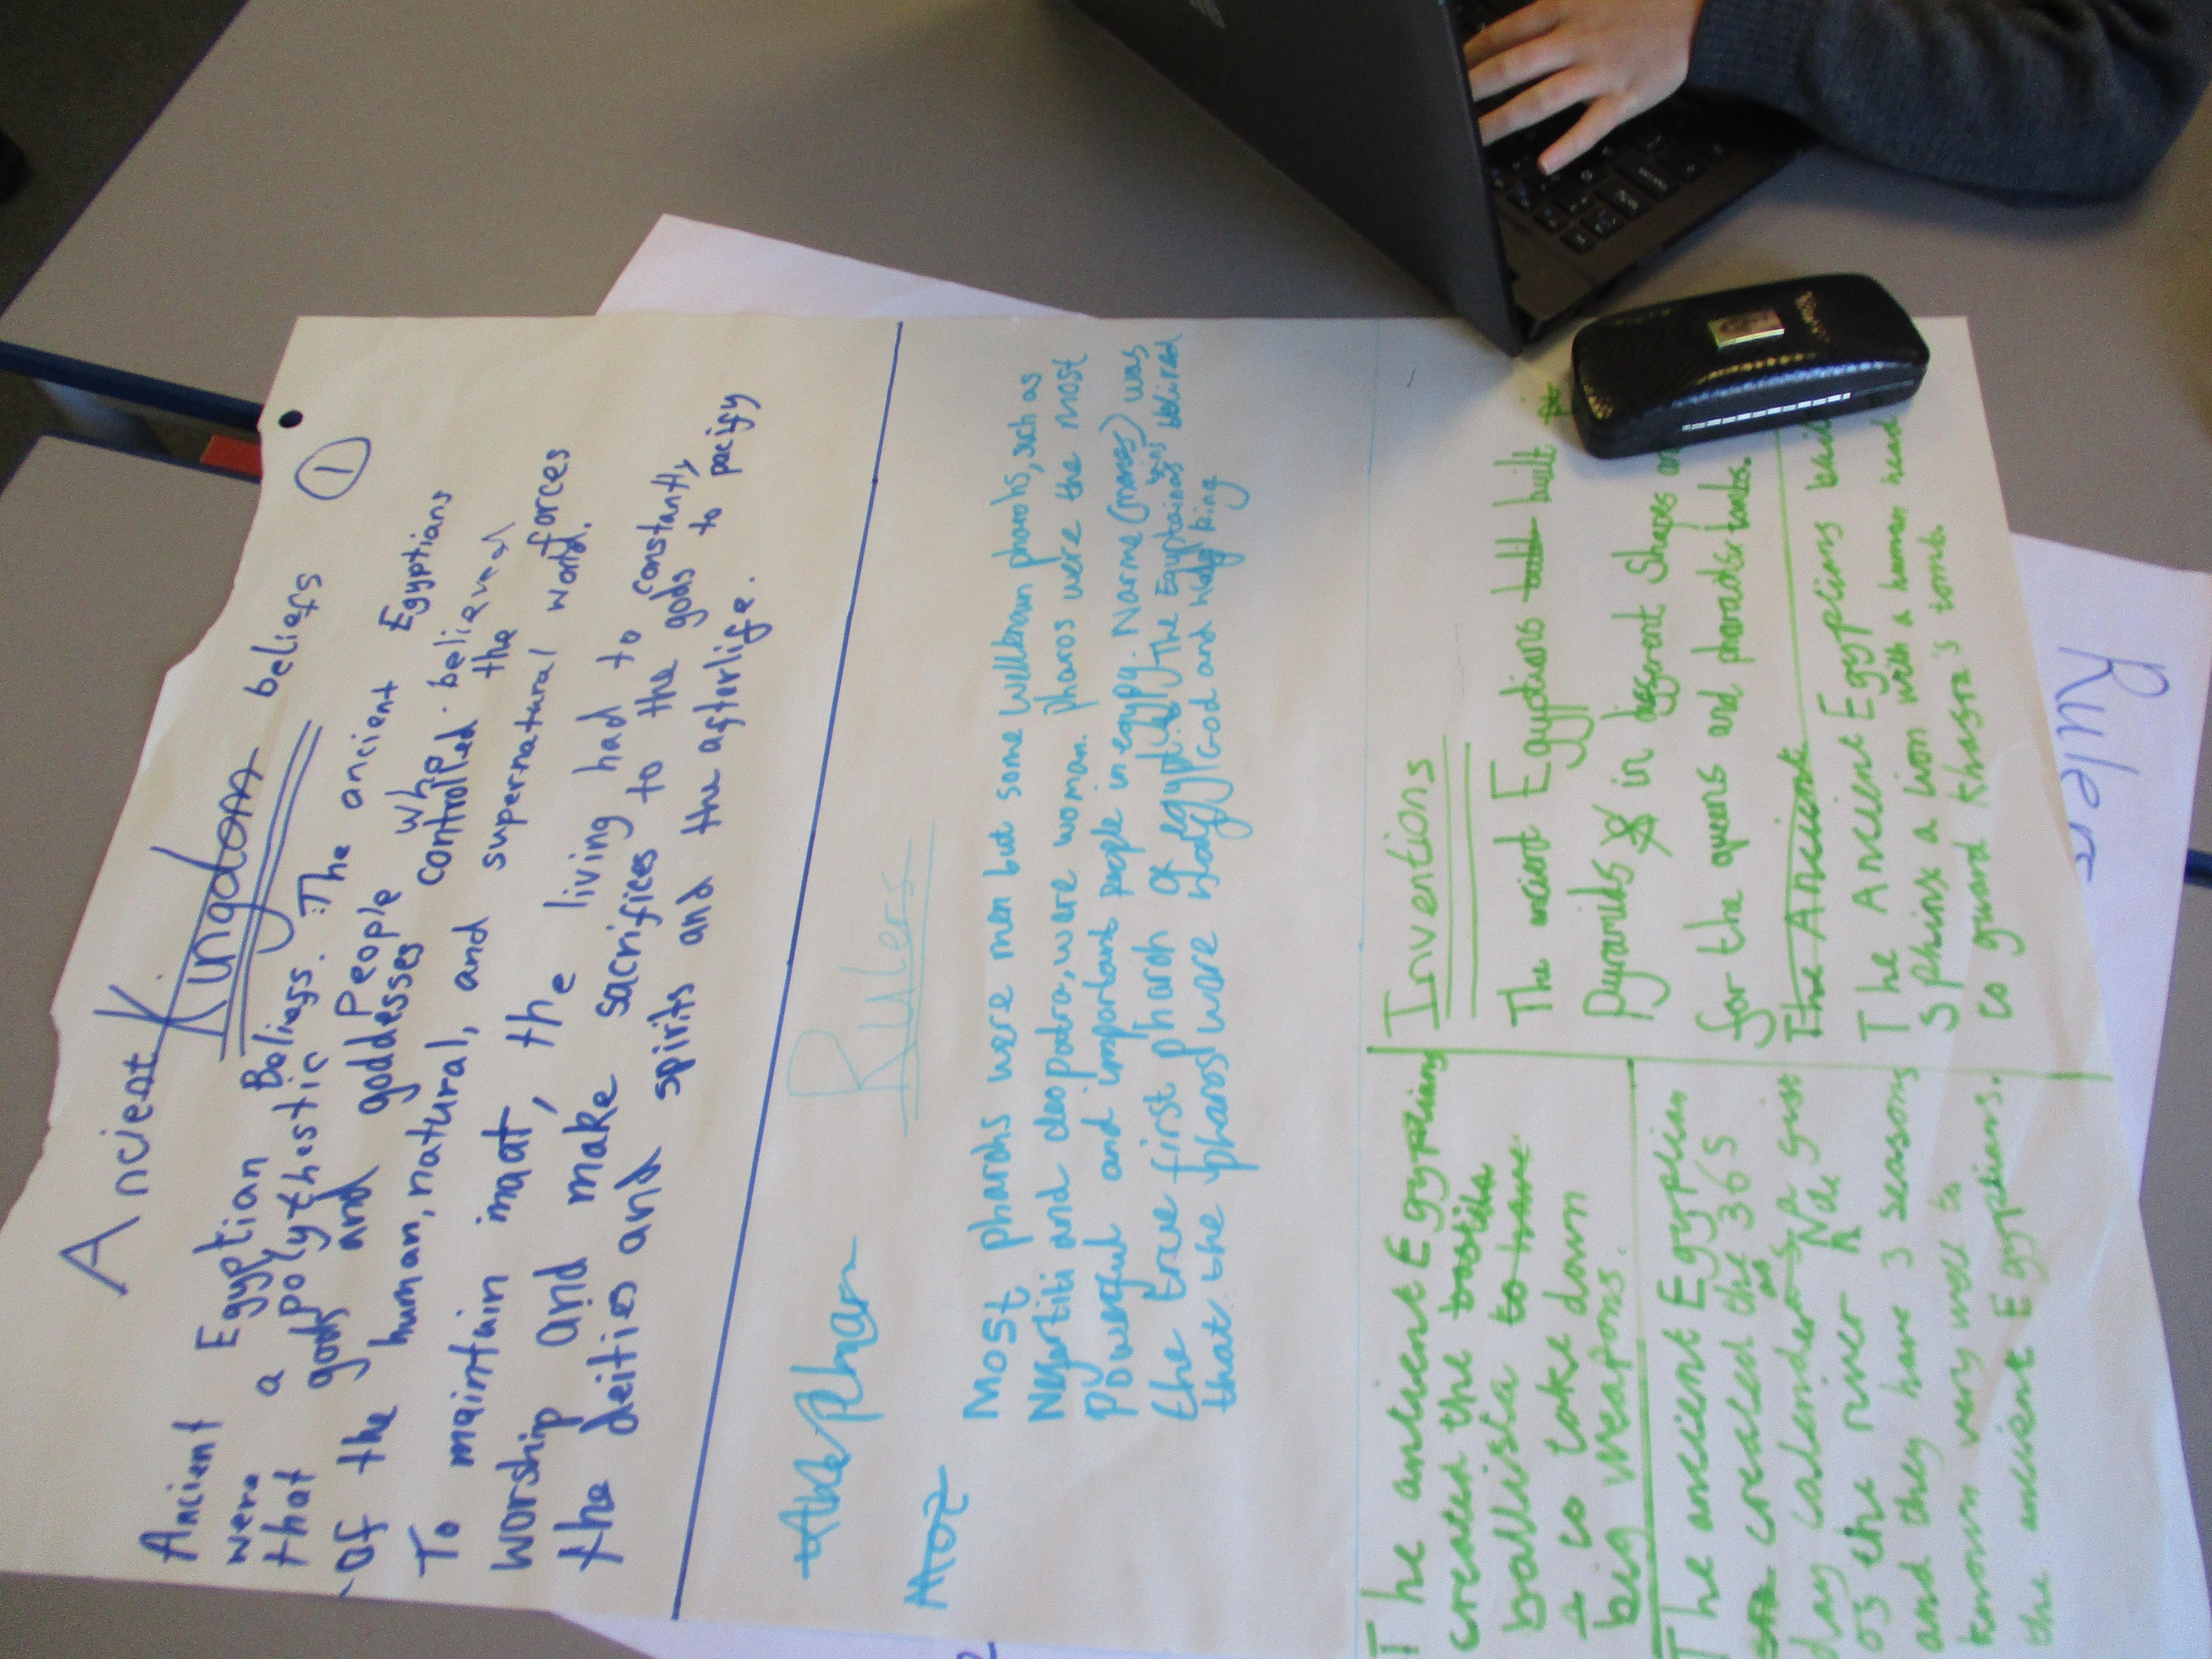 Ancient Kingdom beliefs
1
Ancient Egyptian Beliefs. The ancient Egyptians
were a polythestic People who believed
that gods and goddesses controlled the
Of the human, natural, and supernatural world. forces
To maintain maat, the living had to constantly
worship and make sacrifices to the gods to pacify
the deities and spirits and the afterlife.
Rulers
Most pharohs were men but some wellknown pharohs, such as
Nefertiti and cleopatra, were woman. pharos were the most
powerful and important people in egypy. Narme (manes) was
the true first pharoh of egypt. The Egyptains
that the pharos were half God and half king
Inventions
The ancient Egyptians built
pyramids in different Shapes
for the queens and tombs.
The Ancient
The Ancient Egyptians
Sphinx a lion with a human head
to guard tomb.
The ancient Egyptians
created the
ballista to have
to take down
big weapons.
The ancient Egyptian
created the 365
day calender as a gift
of the river Nile
and they have 3 seasons
known very well to
the ancient Egyptians.
Rulers